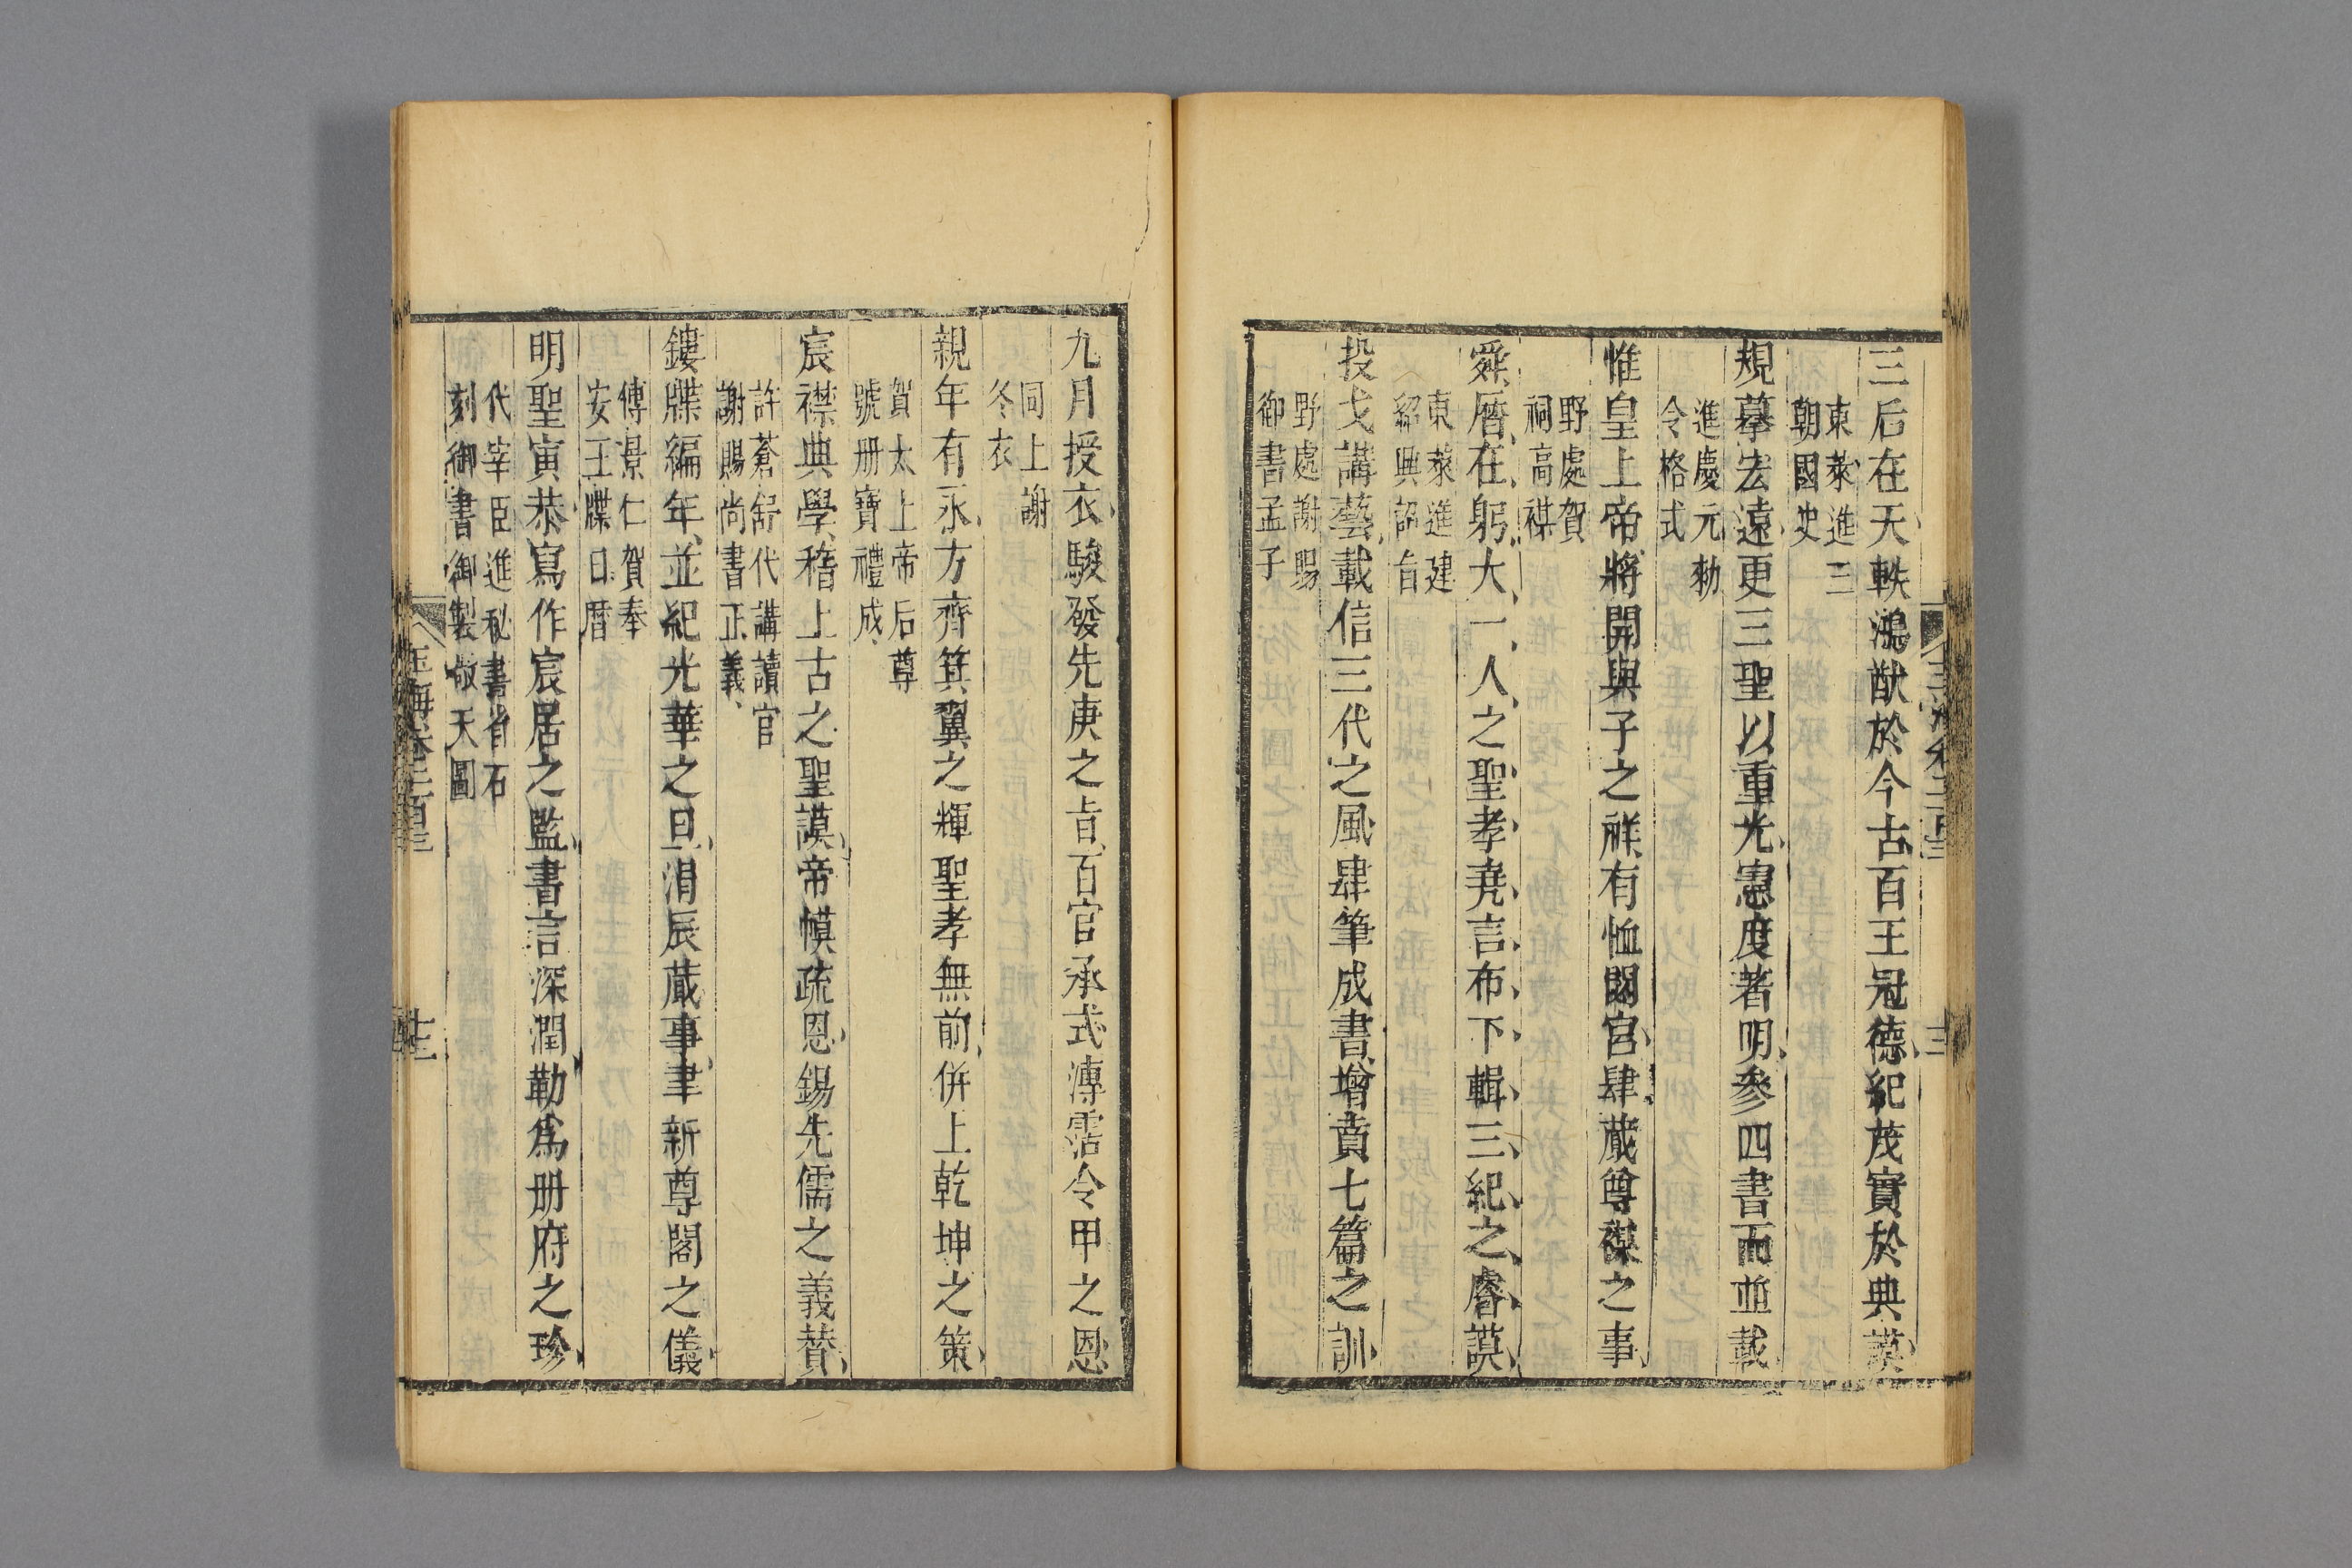 三后在天軼鴻猷於今古百王冠德紀茂實於典謨
東萊進三
朝國史
規摹宏遠更三聖以重光憲度著明參四書而並載
進慶元勑
令格式
惟皇上帝將開與子之祥有恤閟宮肆蕆尊禖之事
野處賀
祠高禖
舜曆在躬大一人之聖孝堯言布下輯三紀之睿謨
東萊進建
紹興詔旨
投戈講藝載信三代之風肆筆成書增賁七篇之訓
野處謝賜
御書孟子
九月授衣駿發先庚之旨百官承式溥霑令甲之恩
同上謝
冬衣
親年有永方齊箕翼之輝聖孝無前併上乾坤之策
賀太上帝后尊
號册寶禮成
宸襟典學稽上古之聖謨帝幙疏恩錫先儒之義賛
許蒼舒代講讀官
謝賜尚書正義
鏤牒編年並紀光華之旦涓辰蕆事聿新尊閣之儀
傅景仁賀奉
安玉牒日曆
明聖寅恭寫作宸居之監書言深潤勒爲册府之珍
代宰臣進秘書省石
刻御書御製敬天圖
玉海卷二百三